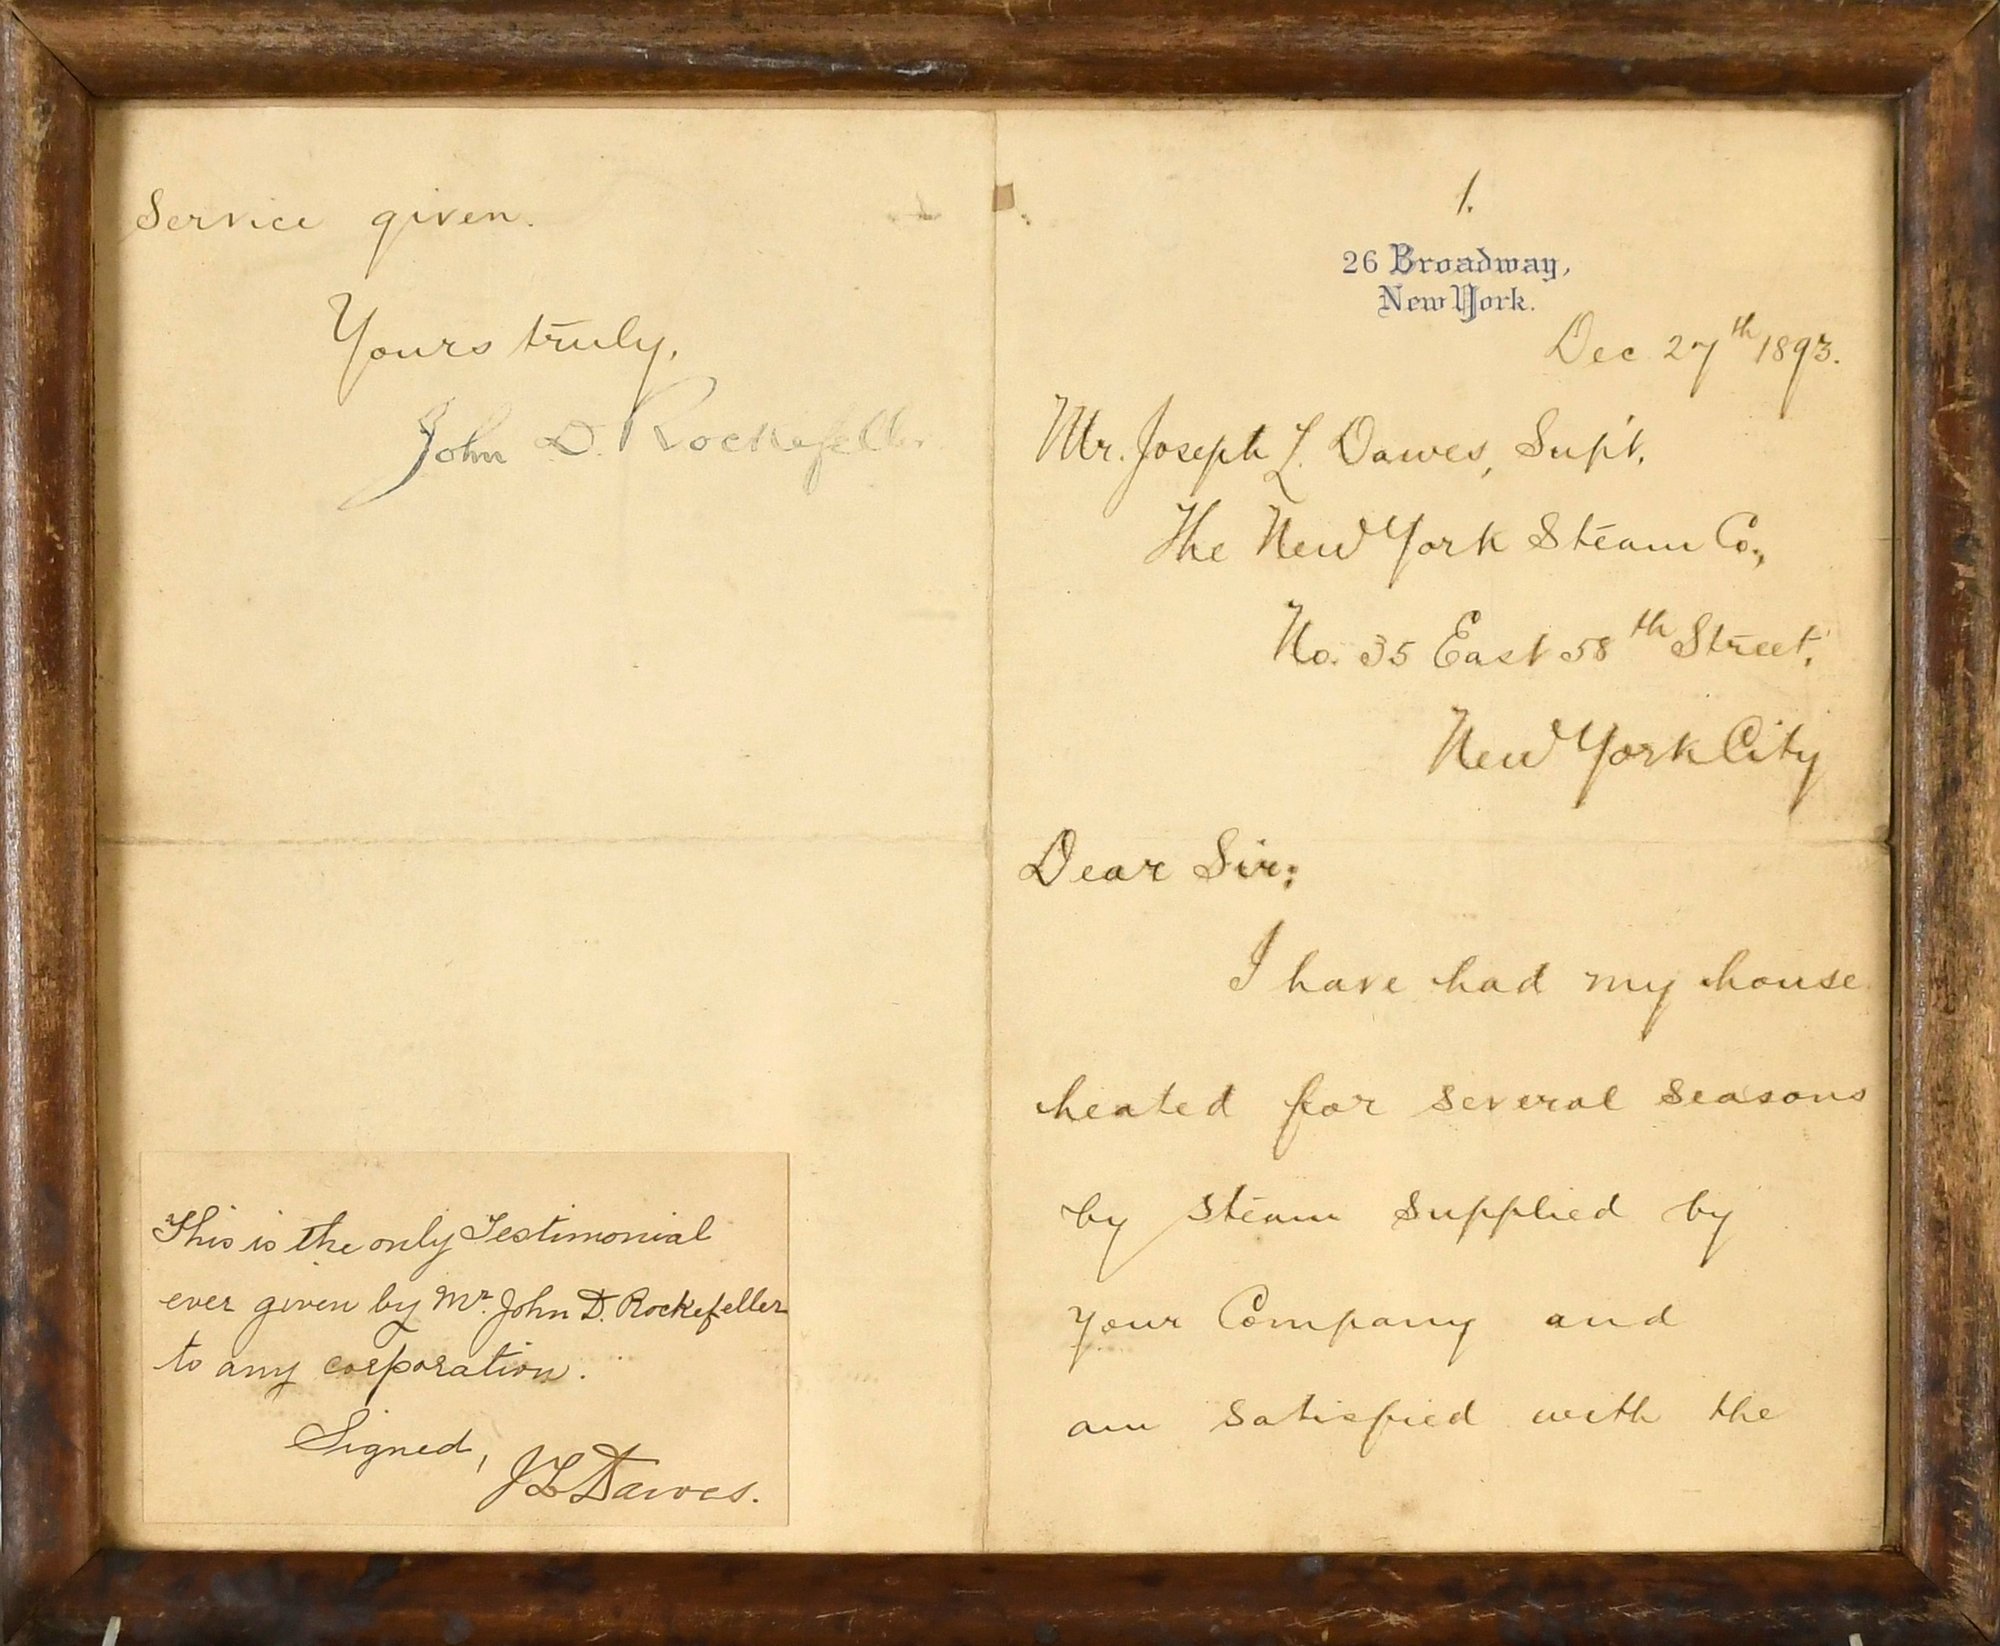 1.
26 Broadway,
New York.
Dec 27th 1893.
Mr. Joseph L. Dawes, Sup't.
The New York Steam Co.,
No. 35 East 58th Street,
New York City
Dear Sir:
I have had my house
heated for several seasons
by steam supplied by
your Company and
am satisfied with the
service given.
Yours truly,
John D. Rockefeller
This is the only Testimonial
ever given by Mr. John D. Rockefeller
to any corporation.
Signed,
J L Dawes.